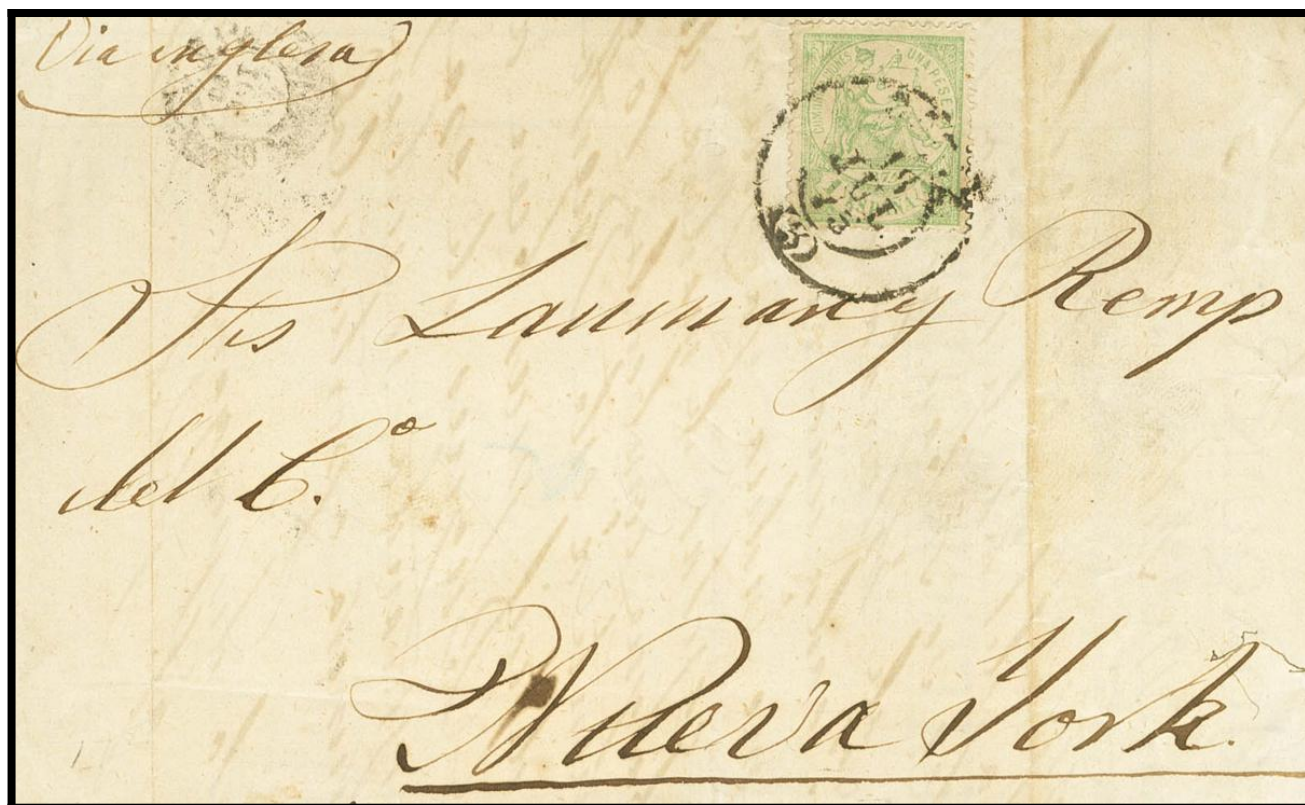 Via inglesa
UNA PESETA
Srs Lanman y Kemp
del C.º
Nueva York